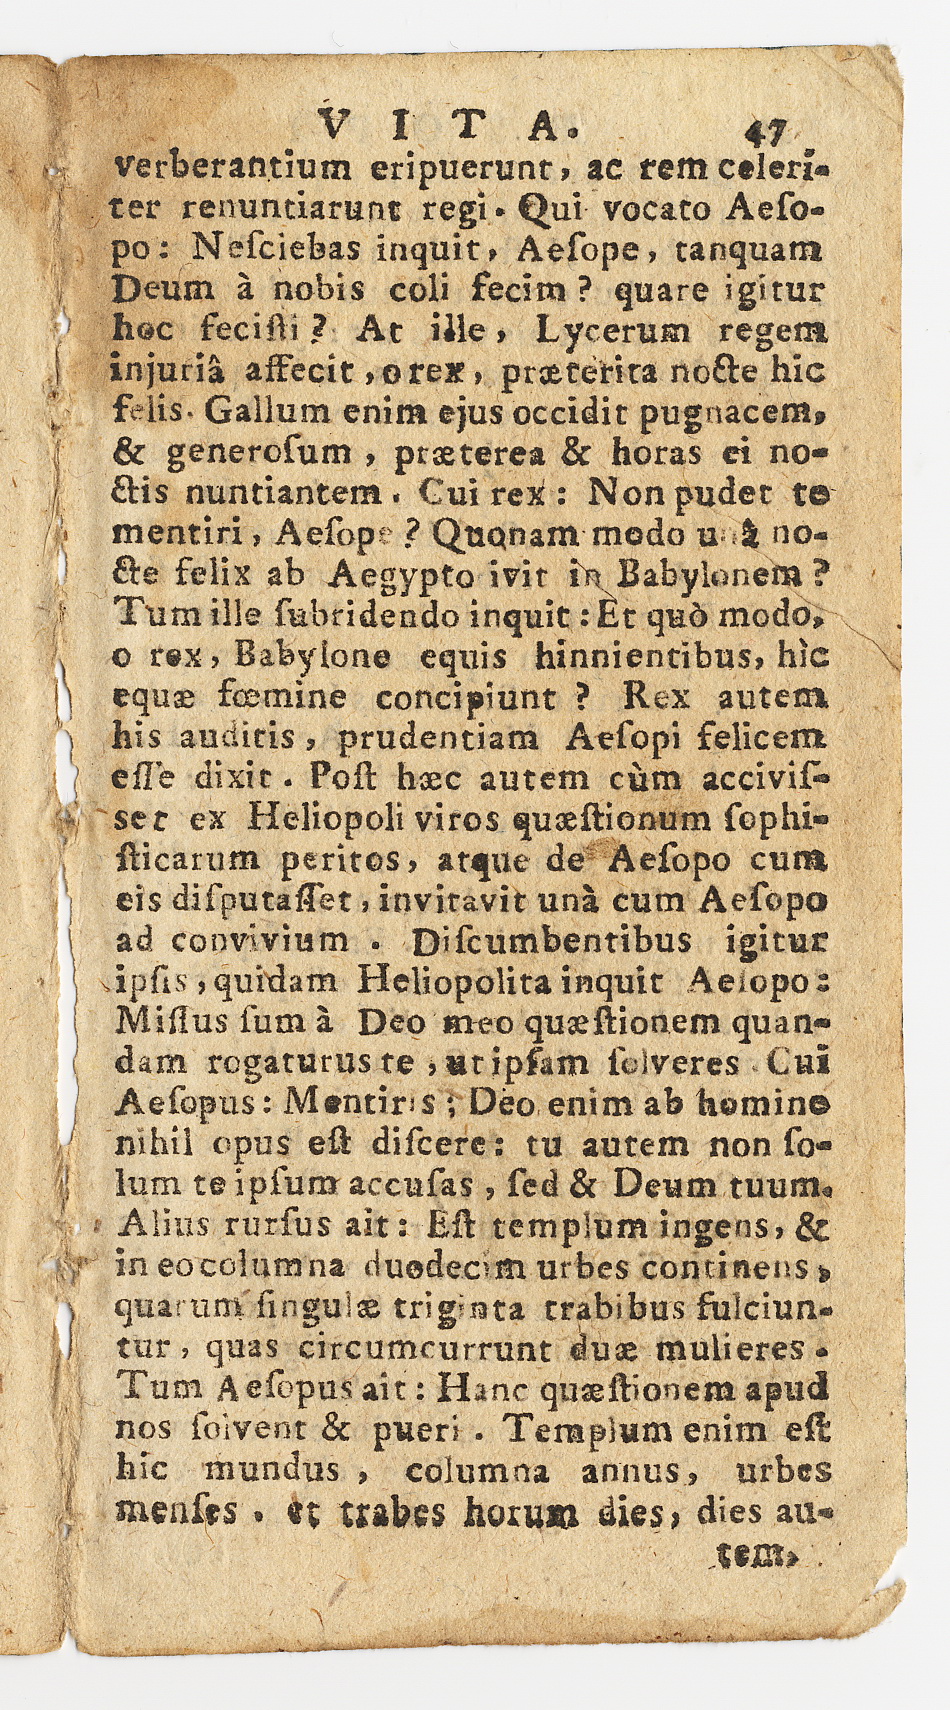 VITA. 47
verberantium eripuerunt, ac rem celeri-
ter renuntiarunt regi. Qui vocato Aeſo-
po: Neſciebas inquit, Aeſope, tanquam
Deum à nobis coli fecim? quare igitur
hoc feciſti? At ille, Lycerum regem
injuriâ affecit, o rex, præterita nocte hic
felis. Gallum enim ejus occidit pugnacem,
& generoſum, præterea & horas ei no-
ctis nuntiantem. Cui rex: Non pudet te
mentiri, Aeſope? Quonam modo unâ no-
cte felix ab Aegypto ivit in Babylonem?
Tum ille ſubridendo inquit: Et quò modo,
o rex, Babylone equis hinnientibus, hìc
equæ fœmine concipiunt? Rex autem
his auditis, prudentiam Aeſopi felicem
eſſe dixit. Poſt hæc autem cùm acciviſ-
set ex Heliopoli viros quæſtionum ſophi-
ſticarum peritos, atque de Aeſopo cum
eis diſputaſſet, invitavit unà cum Aeſopo
ad convivium. Diſcumbentibus igitur
ipſis, quidam Heliopolita inquit Aeſopo:
Miſſus ſum à Deo meo quæſtionem quan-
dam rogaturus te, ut ipſam ſolveres. Cui
Aeſopus: Mentiris; Deo enim ab homine
nihil opus eſt diſcere: tu autem non ſo-
lum te ipſum accuſas, ſed & Deum tuum.
Alius rurſus ait: Eſt templum ingens, &
in eo columna duodecim urbes continens,
quarum ſingulæ triginta trabibus fulciun-
tur, quas circumcurrunt duæ mulieres.
Tum Aeſopus ait: Hanc quæſtionem apud
nos ſolvent & pueri. Templum enim eſt
hic mundus, columna annus, urbes
menſes. et trabes horum dies, dies au-
tem,